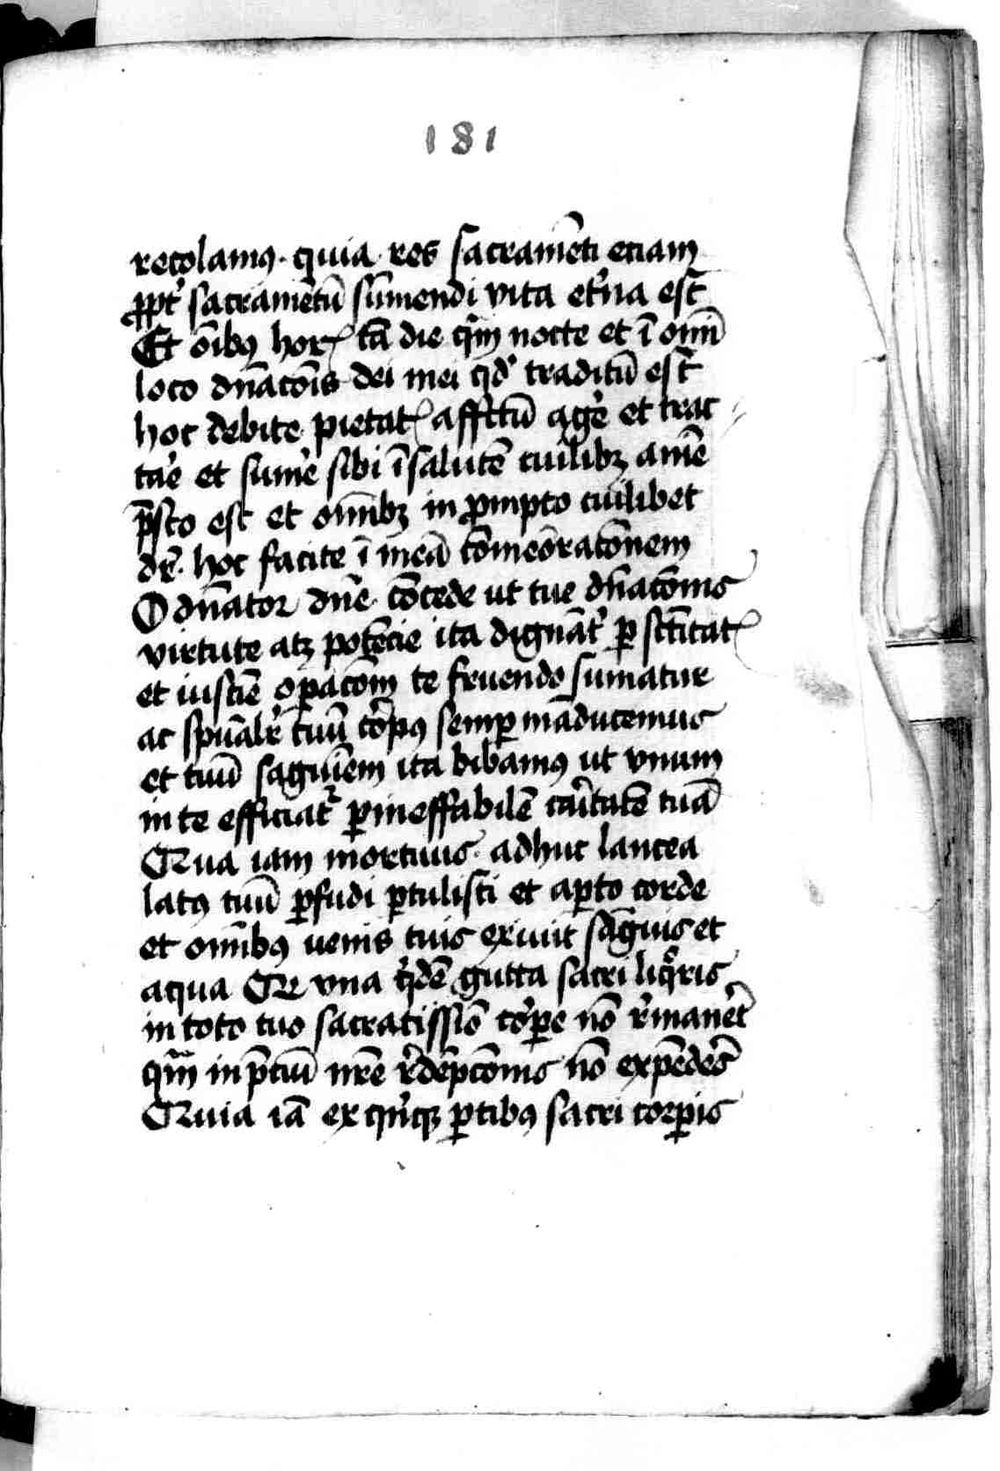 181
recolamꝰ. quia res sacramẽti etiam
ꝓpt᷑ sacramẽtũ sumendi vita et᷑na est
Et õibꝰ horꝭ tã die q̃m nocte et ĩ omĩ
loco dñacõis dei mei qd᷑ traditũ est
hoc debite pietatꝭ affctũ ag᷑e et trac
ta᷑e et sum᷑e sibi ĩ salutẽ cuilibꝫ anĩe
p̃sto est et omĩbꝫ in ꝓmpto cuilibet
dr̃. hoc facite ĩ meã cõmeõracõnem
O dñator dñe. cõcede ut tue dñacõnis
virtute atꝫ potẽcie ita dignãt᷑ ꝑ sc̃titatꝭ
et iusticie oꝑacõm te fruendo sumatur
ac spũalr̃ tuũ corpꝰ semꝑ mãducemus
et tuũ saguinem ita bibamꝰ ut vnum
in te efficiat᷑ ꝑ ineffabilẽ caritatẽ tuã
Qua iam mortuus. adhuc lancea
latꝰ tuũ ꝑfudi ꝑtulisti et aꝑto corde
et omĩbꝰ uenis tuis exiuit sãguis et
aqua Qr vna q᷑dẽ gutta sacri liq̊ris
in toto tuo sacratissĩo cor̃ꝑe nõ r᷑maner̃t
q̃m in p̃ciũ nr̃e r᷑dẽpcõnis nõ expẽdes̃
Quia iã ex q᷑nqꝫ ꝑtibꝰ sacri corꝑis